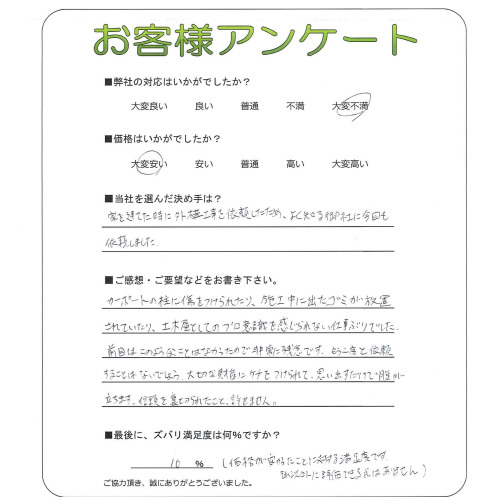 お客様アンケート
■弊社の対応はいかがでしたか？
大変良い 良い 普通 不満 大変不満
■価格はいかがでしたか？
大変安い 安い 普通 高い 大変高い
■当社を選んだ決め手は？
家を建てた時に外構工事を依頼したため、よく知る御社に今回も
依頼しました。
■ご感想・ご要望などをお書き下さい。
カーポートの柱に傷をつけられたり、施工中に出たゴミが放置
されていたり、土木屋としてのプロ意識を感じられない仕事ぶりでした。
前回はこのようなことはなかったので非常に残念です。もう二度と依頼
することはないでしょう。大切な財産にケチをつけられて、思い出すだけで腹が
立ちます。信頼を裏切られたこと、許せません。
■最後に、ズバリ満足度は何％ですか？
10 % (価格が安かったことに対する満足度です
それ以外に評価できる点はありません)
ご協力頂き、誠にありがとうございました。